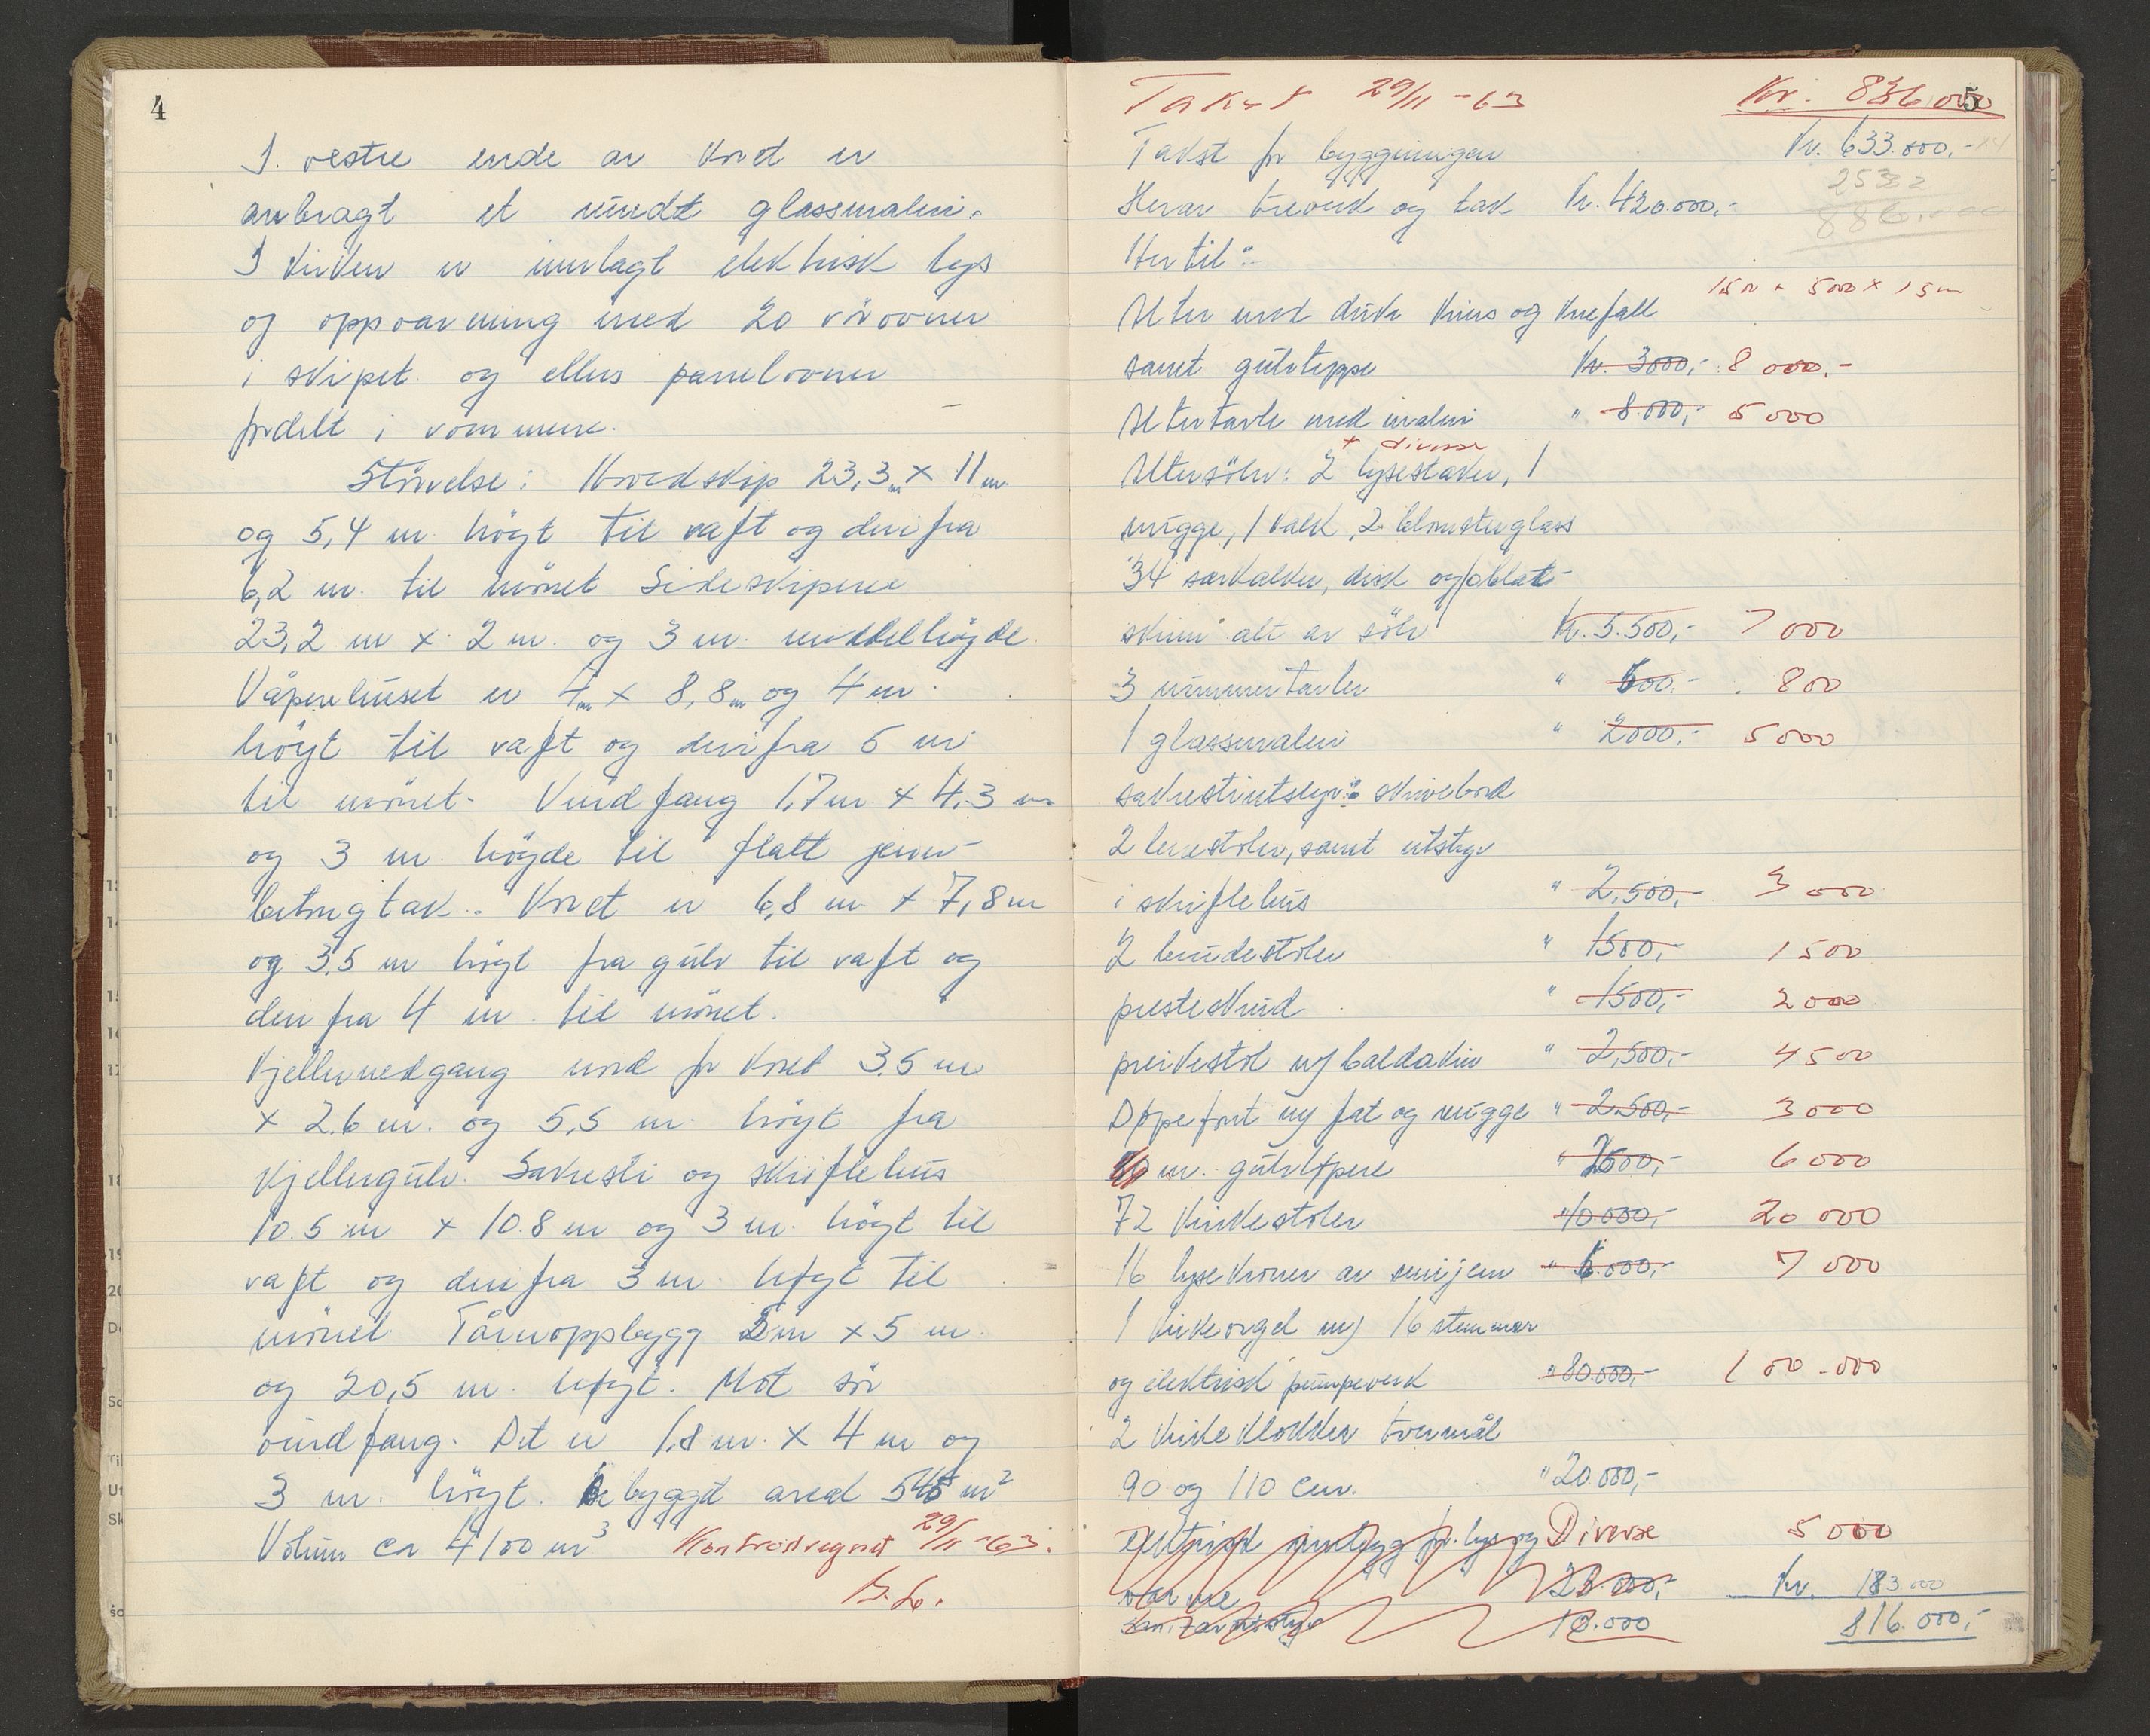 4
I vestre ende av koret er
anbragt et rundt glassmaleri.
I kirken er innlagt elektrisk lys
og oppvarming med 20 rörovner
i skipet og ellers panelovner
fordelt i rommene.
Störrelse: Hovedskip 23,3 m x 11 m
og 5,4 m högt til raft og derifra
6,2 m. til mönet Sideskipene
23,2 m x 2 m. og 3 m. middelhögde
Våpenhuset er 4 m x 8,8 m og 4 m
högt til raft og derifra 6 m
til mönet. Vindfang 1,7 m x 4,3 m
og 3 m högde til flatt jern-
betongtak. Koret er 6,8 m x 7,8 m
og 3,5 m högt fra gulv til raft og
derifra 4 m til mönet.
Kjellernedgang nord for koret 3,5 m
x 2,6 m. og 5,5 m högt fra
kjellergulv. Sakresti og skriftehus
10.5 m x 10.8 m og 3 m. högt til
raft og derifra 3 m. høgt til
mönet Tårnoppbygg 5 m x 5 m.
og 20,5 m. høgt. Mot sör
vindfang. Det er 1,8 m. x 4 m og
3 m. högt. Bebygget areal 545 m²
Volum ca 4100 m³ Kontrollregnet 29/11-63.
5
Takst 29/11-63 Kr. 836 000
Takst for bygningen Kr. 633.000,-
Herav treverk og tak Kr. 420.000,-
Hertil:
Alter med duk, krus og knefall
samt gulvteppe Kr. 3000,- 8 000,-
Altertavle med maleri " 8.000,- 5 000
+ diverse
Altersölv: 2 lysestaker, 1
mugge, 1 kalk, 2 blomsterglass
34 særkalker, disk og oblat-
skrin alt av sölv Kr. 5.500,- 7 000
3 nummertavler " 600,- 800
1 glassmaleri " 2000,- 5000
sakrestiutstyr: skrivebord
2 lenestoler, samt utstyr
i skriftehus " 2,500,- 3 000
2 brudestoler " 1500,- 1500
presteskrud " 1500,- 2000
prekestol m/ baldakin " 2,500,- 4500
Døpefont m/ fat og mugge " 2.500,- 3000
m. gulvløpere " 2500,- 6000
72 kirkestoler " 10.000,- 20 000
16 lysekroner av smijern " 6.000,- 7 000
1 kirkeorgel m/ 16 stemmer
og elektrisk pumpeverk " 80.000,- 100.000
2 kirkeklokker tverrmål
90 og 110 cm. " 20.000,-
elektrisk innlegg for lys og Diverse 5000
varme 28.000,- Kr. 183.000
10.000 816.000,-